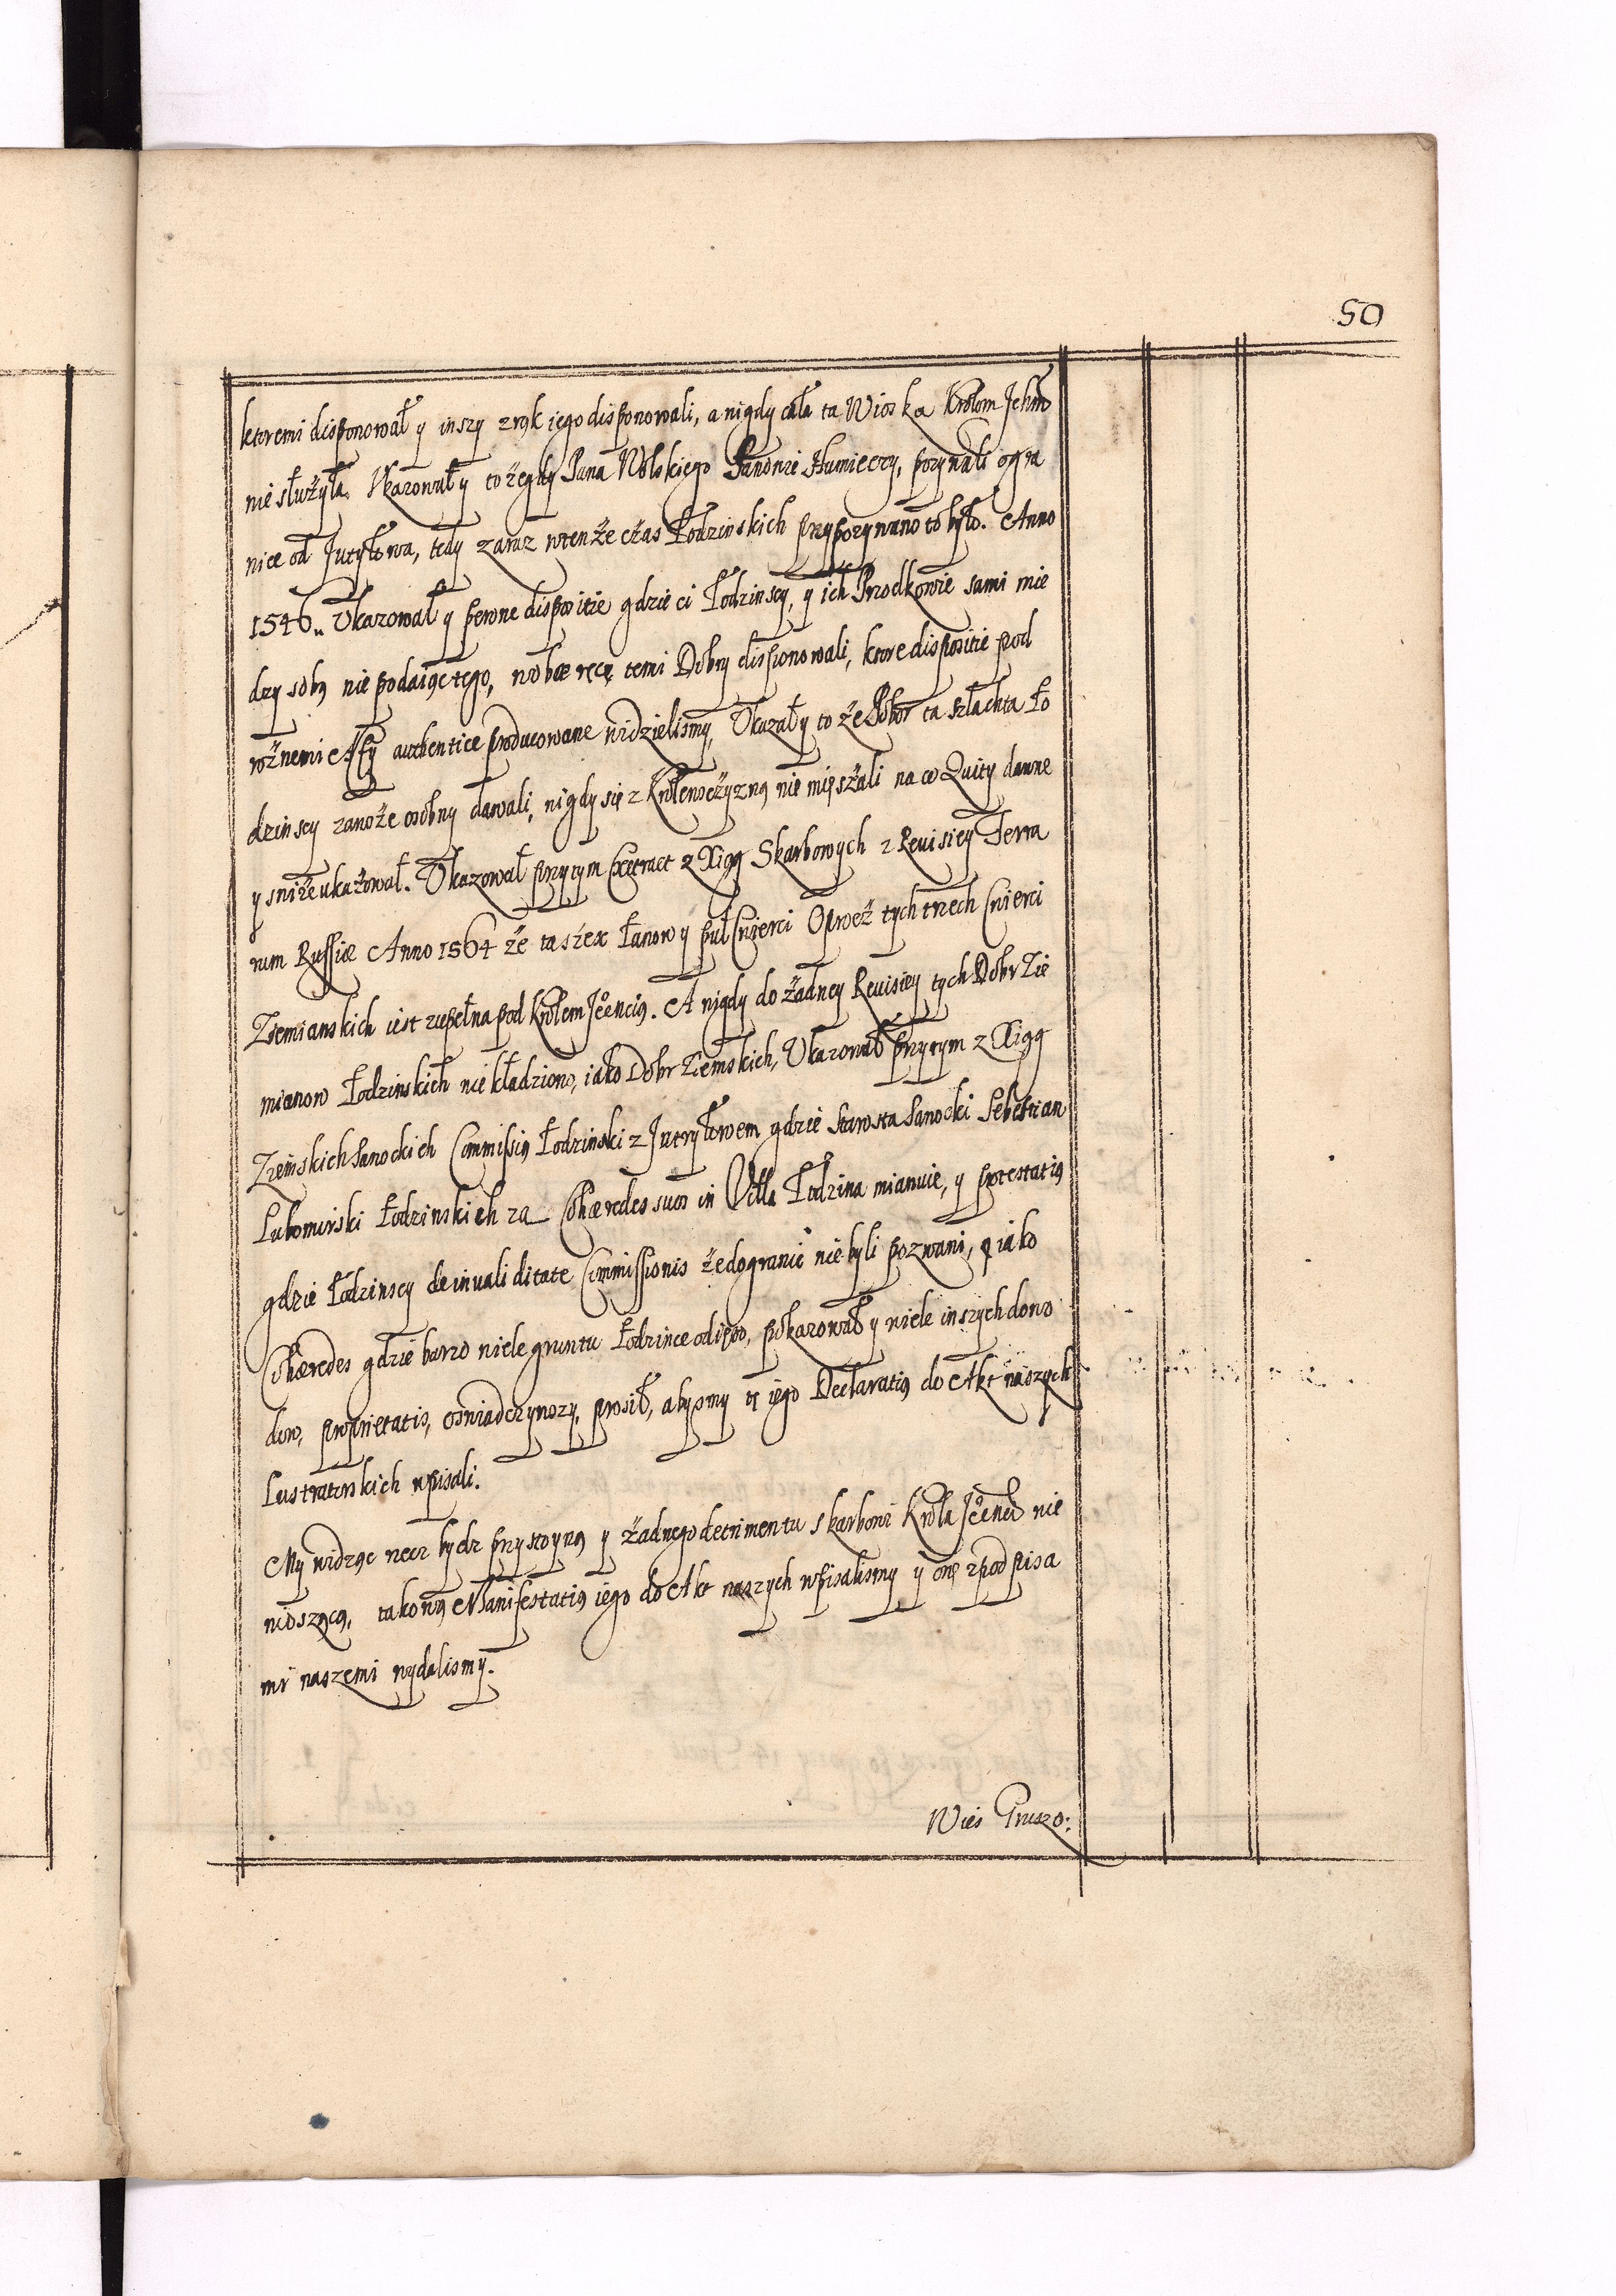 50
ktoremi disponował y inszy z ręk iego disponowali, a nigdy cała ta Wioska Krolom Jchm̃
nie służyła. Vkazował y to że gdy Pana Wolskiego Panowie Humieccy, pozywali o gra
nice od Jutryłowa, tedy zaraz w tenże czas Łodzinskich przypozywano to było. Anno
1546.. Vkazował y pewne dispozitie gdzie ci Łodzinscy, y ich Przodkowie sami mie
dzy sobą nie podaiąc tego, w obce ręcę temi Dobry disponowali, ktore dispositie pod
rożnemi Akty authentice producowane widzielismy, Vkazał y to że Pobor ta szlachta Ło
dzinscy zawże osobny dawali, nigdy się z Krolewczyzną nie mięszali na co Quity dawne
y swieże ukazował. Vkazował przytym Extract z Xiąg Skarbowych z Reuisiey Terra
rum Russiæ Anno 1564 że ta szex Łanow y puł Cwierci Oprocz tych trzech Cwierci
Ziemianskich iest zupełna pod Krolem Jo̊encią. A nigdy do żadney Reuisiey tych Dobr Zie
mianow Łodzinskich nie kładziono, iako Dobr Ziemskich, Vkazował przytym z Xiąg
Ziemskich Sanockich Commissią Łodzinski z Jutryłowem gdzie Starosta Sanocki Sebestian
Lubomirski Łodzinskich za Cohæredes suos in Villa Łodzina mianuie, y protestatią
gdzie Łodzinscy de inualiditate Commissionis że do granic nie byli pozwani, iako
Cohæredes gdzie barzo wiele gruntu Łodzince odięto, pokazował y wiele inszych dowo
dow, proprietatis, oswiadczywszy, prosił, abysmy tę iego Declaratią do Akt naszych
Lustratorskich wpisali.
My widząc rzecz bydz przystoyną y żadnego detrimentu skarbowi Krola Jo̊enci nie
nioszącą, takową Manifestatią iego do Akt naszych wpisalismy y onę z podpisa
mi naszemi wydalismy.
Wies Gruszo: